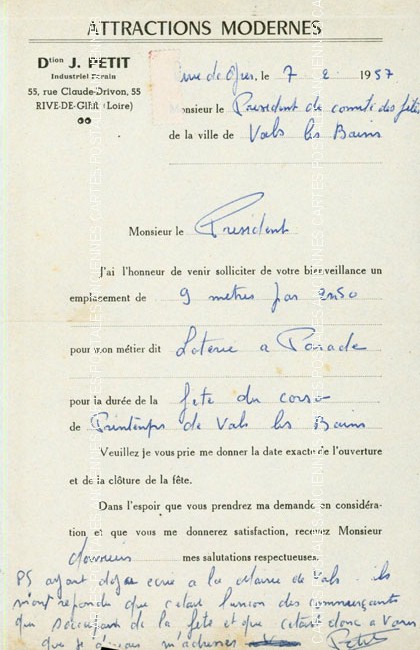 ATTRACTIONS MODERNES
Dtion J. PETIT
Industriel Forain
55, rue Claude-Drivon, 55
RIVE-DE-GIER (Loire)
Rive de Gier, le 7 2 1957
Monsieur le President de comité des fêtes
de la ville de Vals les Bains
Monsieur le President
J'ai l'honneur de venir solliciter de votre bienveillance un
emplacement de 9 metres par 2m50
pour mon métier dit Loterie a Parade
pour la durée de la fete du corso
de Printemps de Vals les Bains
Veuillez je vous prie me donner la date exacte de l'ouverture
et de la clôture de la fête.
Dans l'espoir que vous prendrez ma demande en considéra-
tion et que vous me donnerez satisfaction, recevez Monsieur
mes salutations respectueuses.
PS ayant deja ecrie a la Mairie de Vals ils
m'ont repondu que cetait l'union des commercants
qui de la fete et que cetait donc a Vous
que je m'adresser Petit